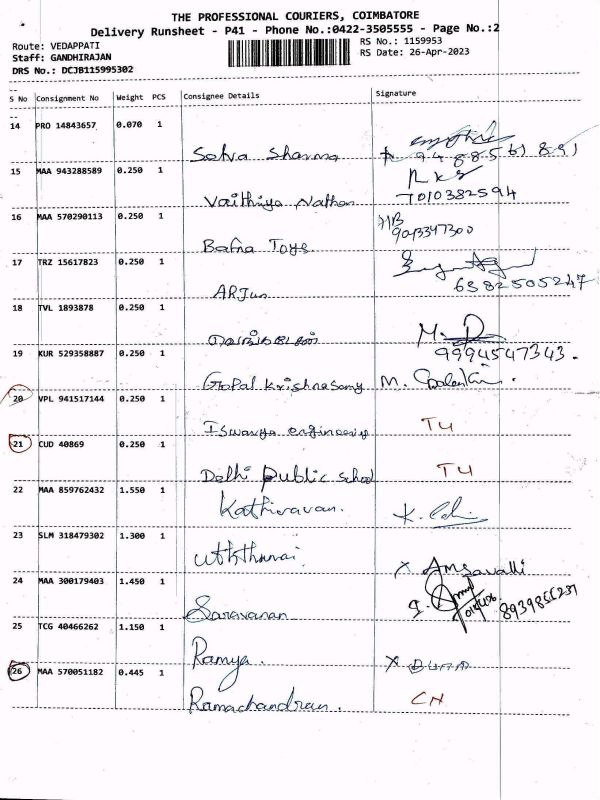 THE PROFESSIONAL COURIERS, COIMBATORE
Delivery Runsheet - P41 - Phone No.:0422-3505555 - Page No.:2
Route: VEDAPPATI
RS No.: 1159953
Staff: GANDHIRAJAN
RS Date: 26-Apr-2023
DRS No.: DCJB115995302
S No Consignment No Weight PCS Consignee Details Signature
14 PRO 14843657 0.070 1
Satva Sharma
15 MAA 943288589 0.250 1
Vaithiya Nathan 7010382594
16 MAA 570290113 0.250 1
Bafna Toys
17 TRZ 15617823 0.250 1
ARJun 6382505247
18 TVL 1893878 0.250 1
M. D
19 KUR 529358887 0.250 1
9994547343.
Gopal Krishnasamy M.
20 VPL 941517144 0.250 1
Iswarya engineering T4
21 CUD 40869 0.250 1
Delhi Public School T4
22 MAA 859762432 1.550 1
Kathiravan. K.
23 SLM 318479302 1.300 1
24 MAA 300179403 1.450 1
Saravanan
25 TCG 40466262 1.150 1
Ramya.
26 MAA 570051182 0.445 1
Ramachandran. CN